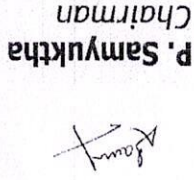 P. Samyuktha
Chairman